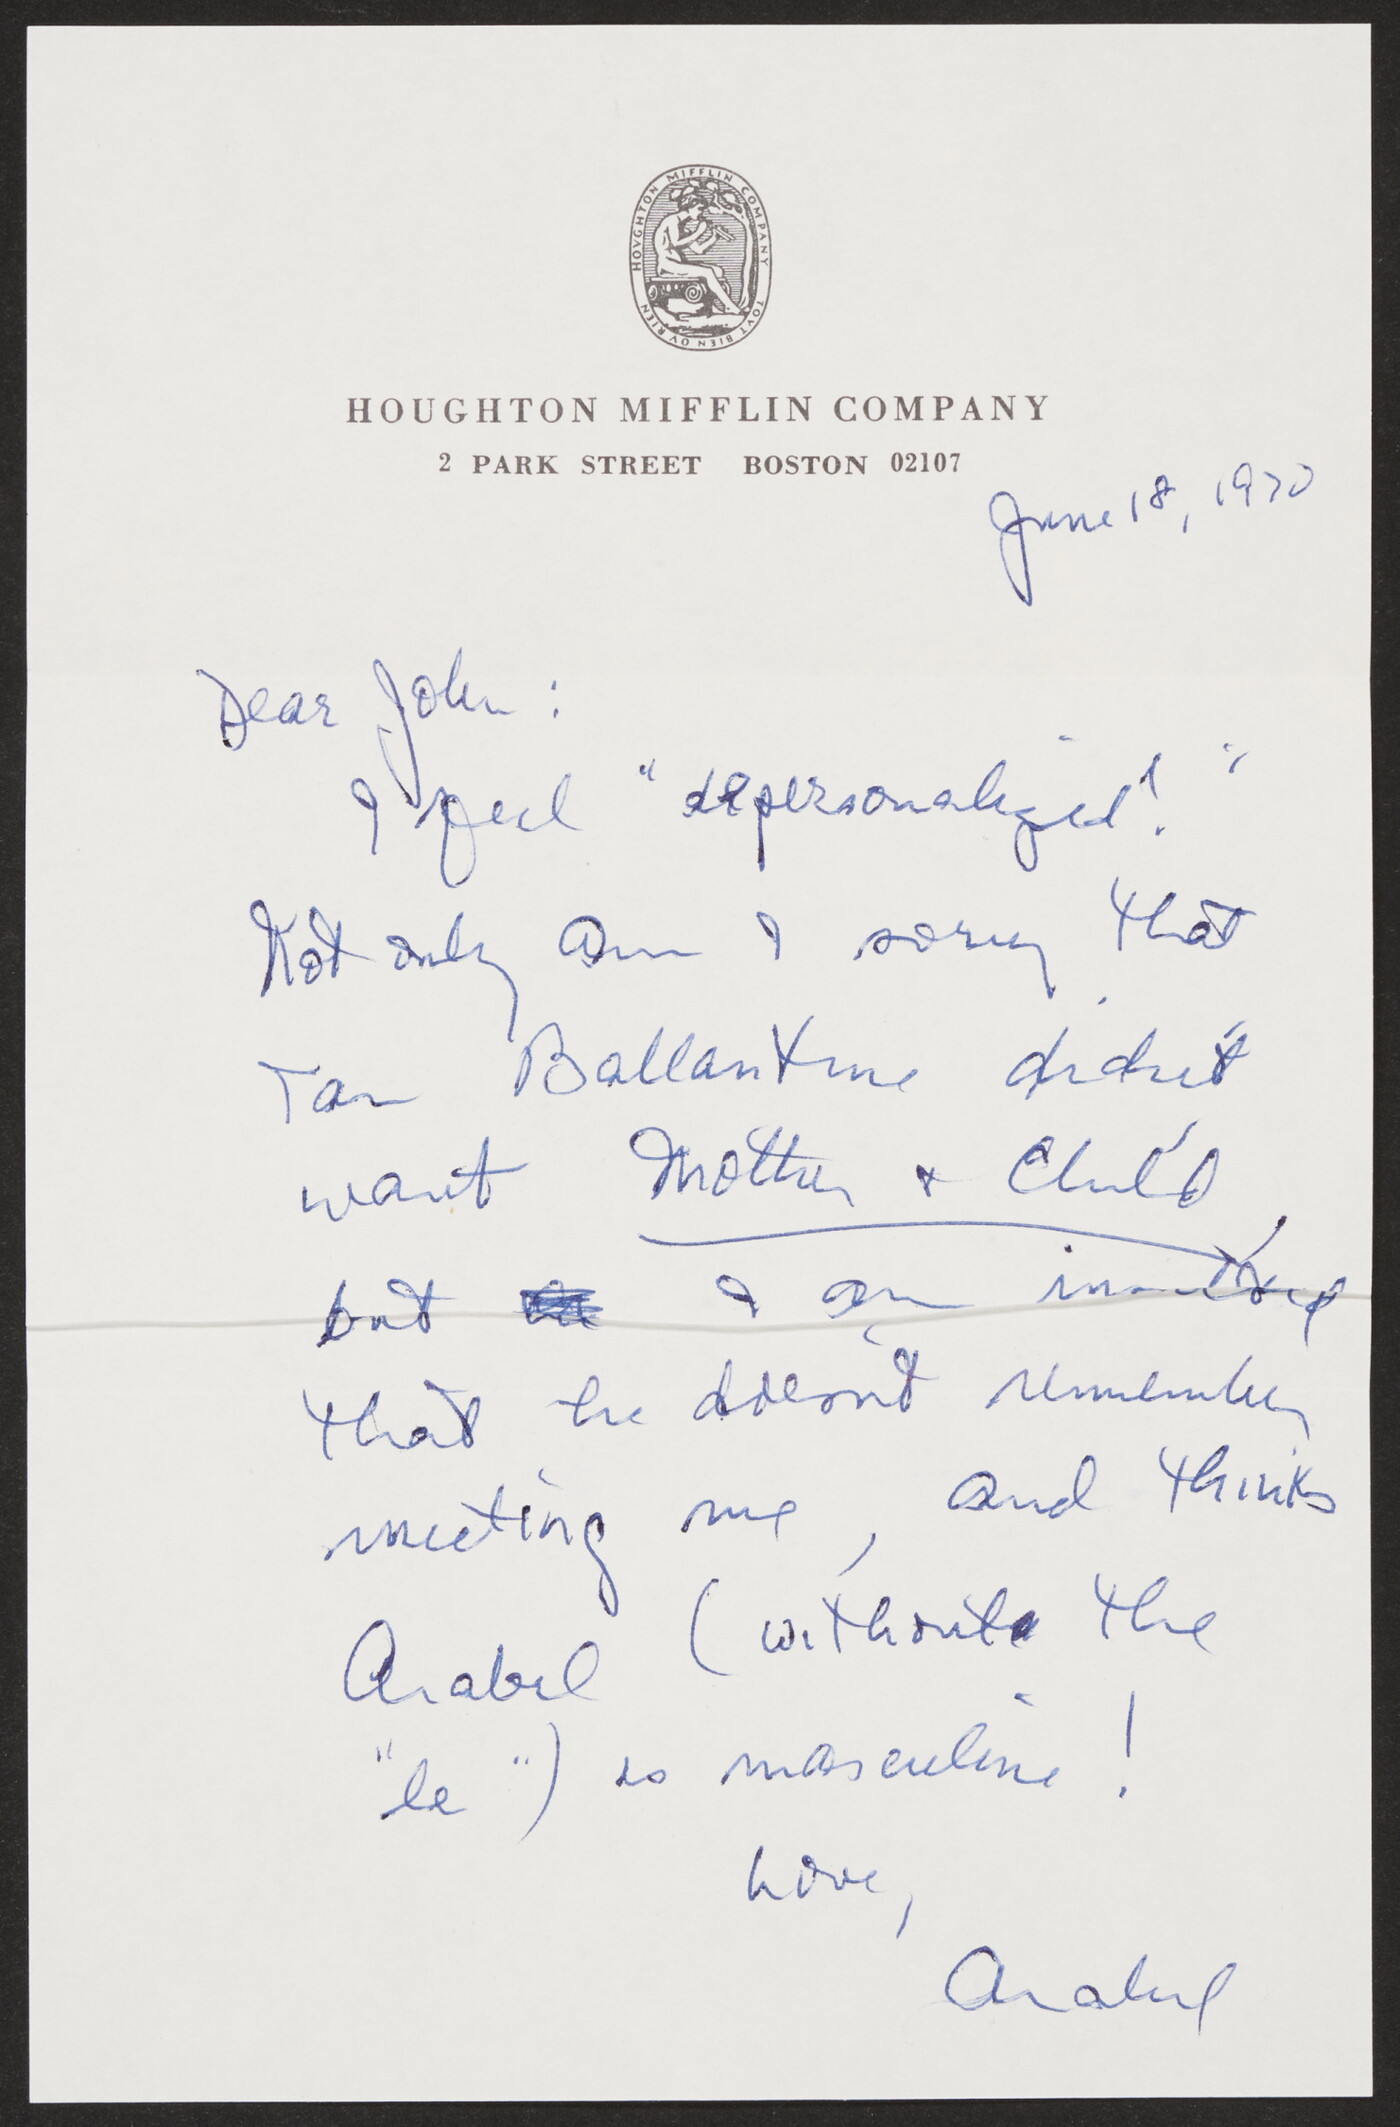 HOUGHTON MIFFLIN COMPANY
TOVT BIEN OV RIEN
HOUGHTON MIFFLIN COMPANY
2 PARK STREET BOSTON 02107
June 18, 1970
Dear John:
I feel "depersonalized!"
Not only am I sorry that
Ian Ballantine didn't
want Mother & Child,
but I am
that he doesn't remember
meeting me, and thinks
Arabel (without the
"le") is masculine!
Love,
Arabel